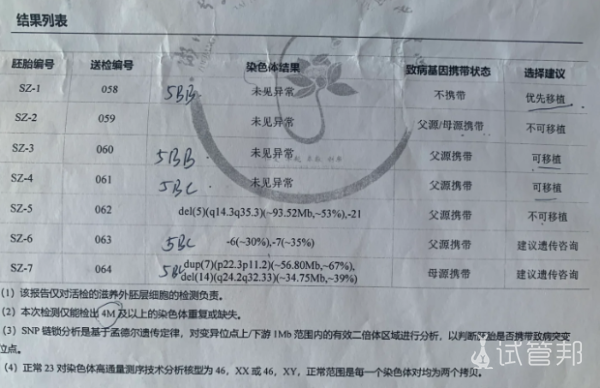 结果列表
胚胎编号 送检编号 染色体结果 致病基因携带状态 选择建议
SZ-1 058 5BB 未见异常 不携带 优先移植
SZ-2 059 未见异常 父源/母源携带 不可移植
SZ-3 060 5BB 未见异常 父源携带 可移植
SZ-4 061 5BC 未见异常 父源携带 可移植
SZ-5 062 del(5)(q14.3q35.3)(~93.52Mb,~53%),-21 父源携带 不可移植
SZ-6 063 5BC -6(~30%),-7(~35%) 父源携带 建议遗传咨询
SZ-7 064 dup(7)(p22.3p11.2)(~56.80Mb,~67%), 母源携带 建议遗传咨询
del(14)(q24.2q32.33)(~34.75Mb,~39%)
(1) 该报告仅对活检的滋养外胚层细胞的检测负责。
(2) 本次检测仅能检出 4M 及以上的染色体重复或缺失。
(3) SNP 连锁分析是基于孟德尔遗传定律，对变异位点上/下游 1Mb 范围内的有效二倍体区域进行分析，以判断胚胎是否携带致病突变
位点。
(4) 正常 23 对染色体高通量测序技术分析核型为 46，XX 或 46，XY，正常范围是每一个染色体对均为两个拷贝。
试管邦